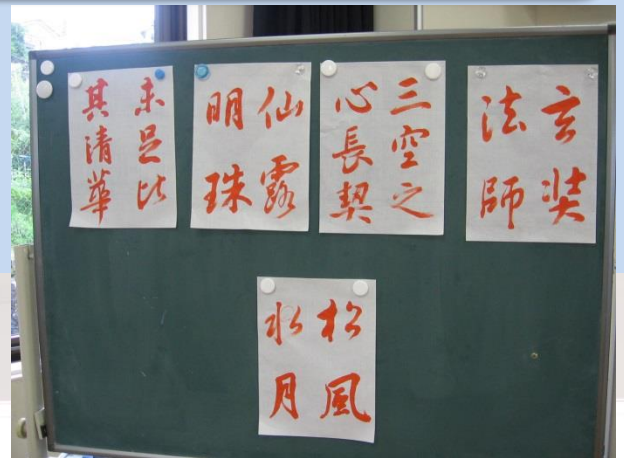 玄奘
法師
三空之
心長契
仙露
明珠
未足比
其清華
松風
水月